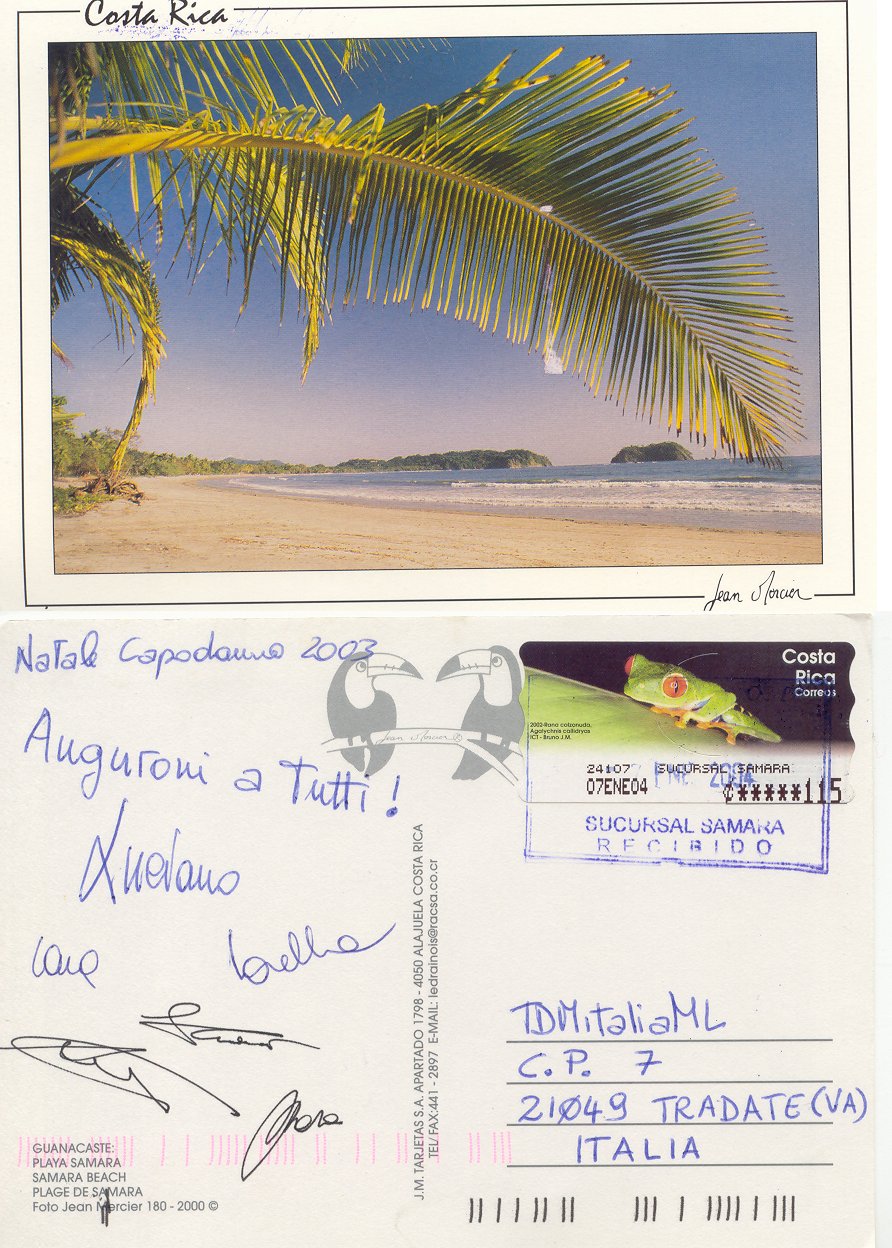 Costa Rica
Jean Mercier
Natale Capodanno 2003
Auguroni a Tutti!
Luciano
Lorella
Jean Mercier ©
Costa
Rica
Correos
2002-Rana calzonuda,
Agalychnis callidryas
ICT - Bruno J.M.
24107 SUCURSAL SAMARA
07ENE04 ₡*****115
ENE 2004
SUCURSAL SAMARA
RECIBIDO
J.M. TARJETAS S.A. APARTADO 1798 - 4050 ALAJUELA COSTA RICA
TEL/FAX:441 - 2897 E-MAIL: ledrainois@racsa.co.cr
TDMitaliaML
C.P. 7
21049 TRADATE (VA)
ITALIA
GUANACASTE:
PLAYA SAMARA
SAMARA BEACH
PLAGE DE SAMARA
Foto Jean Mercier 180 - 2000 ©